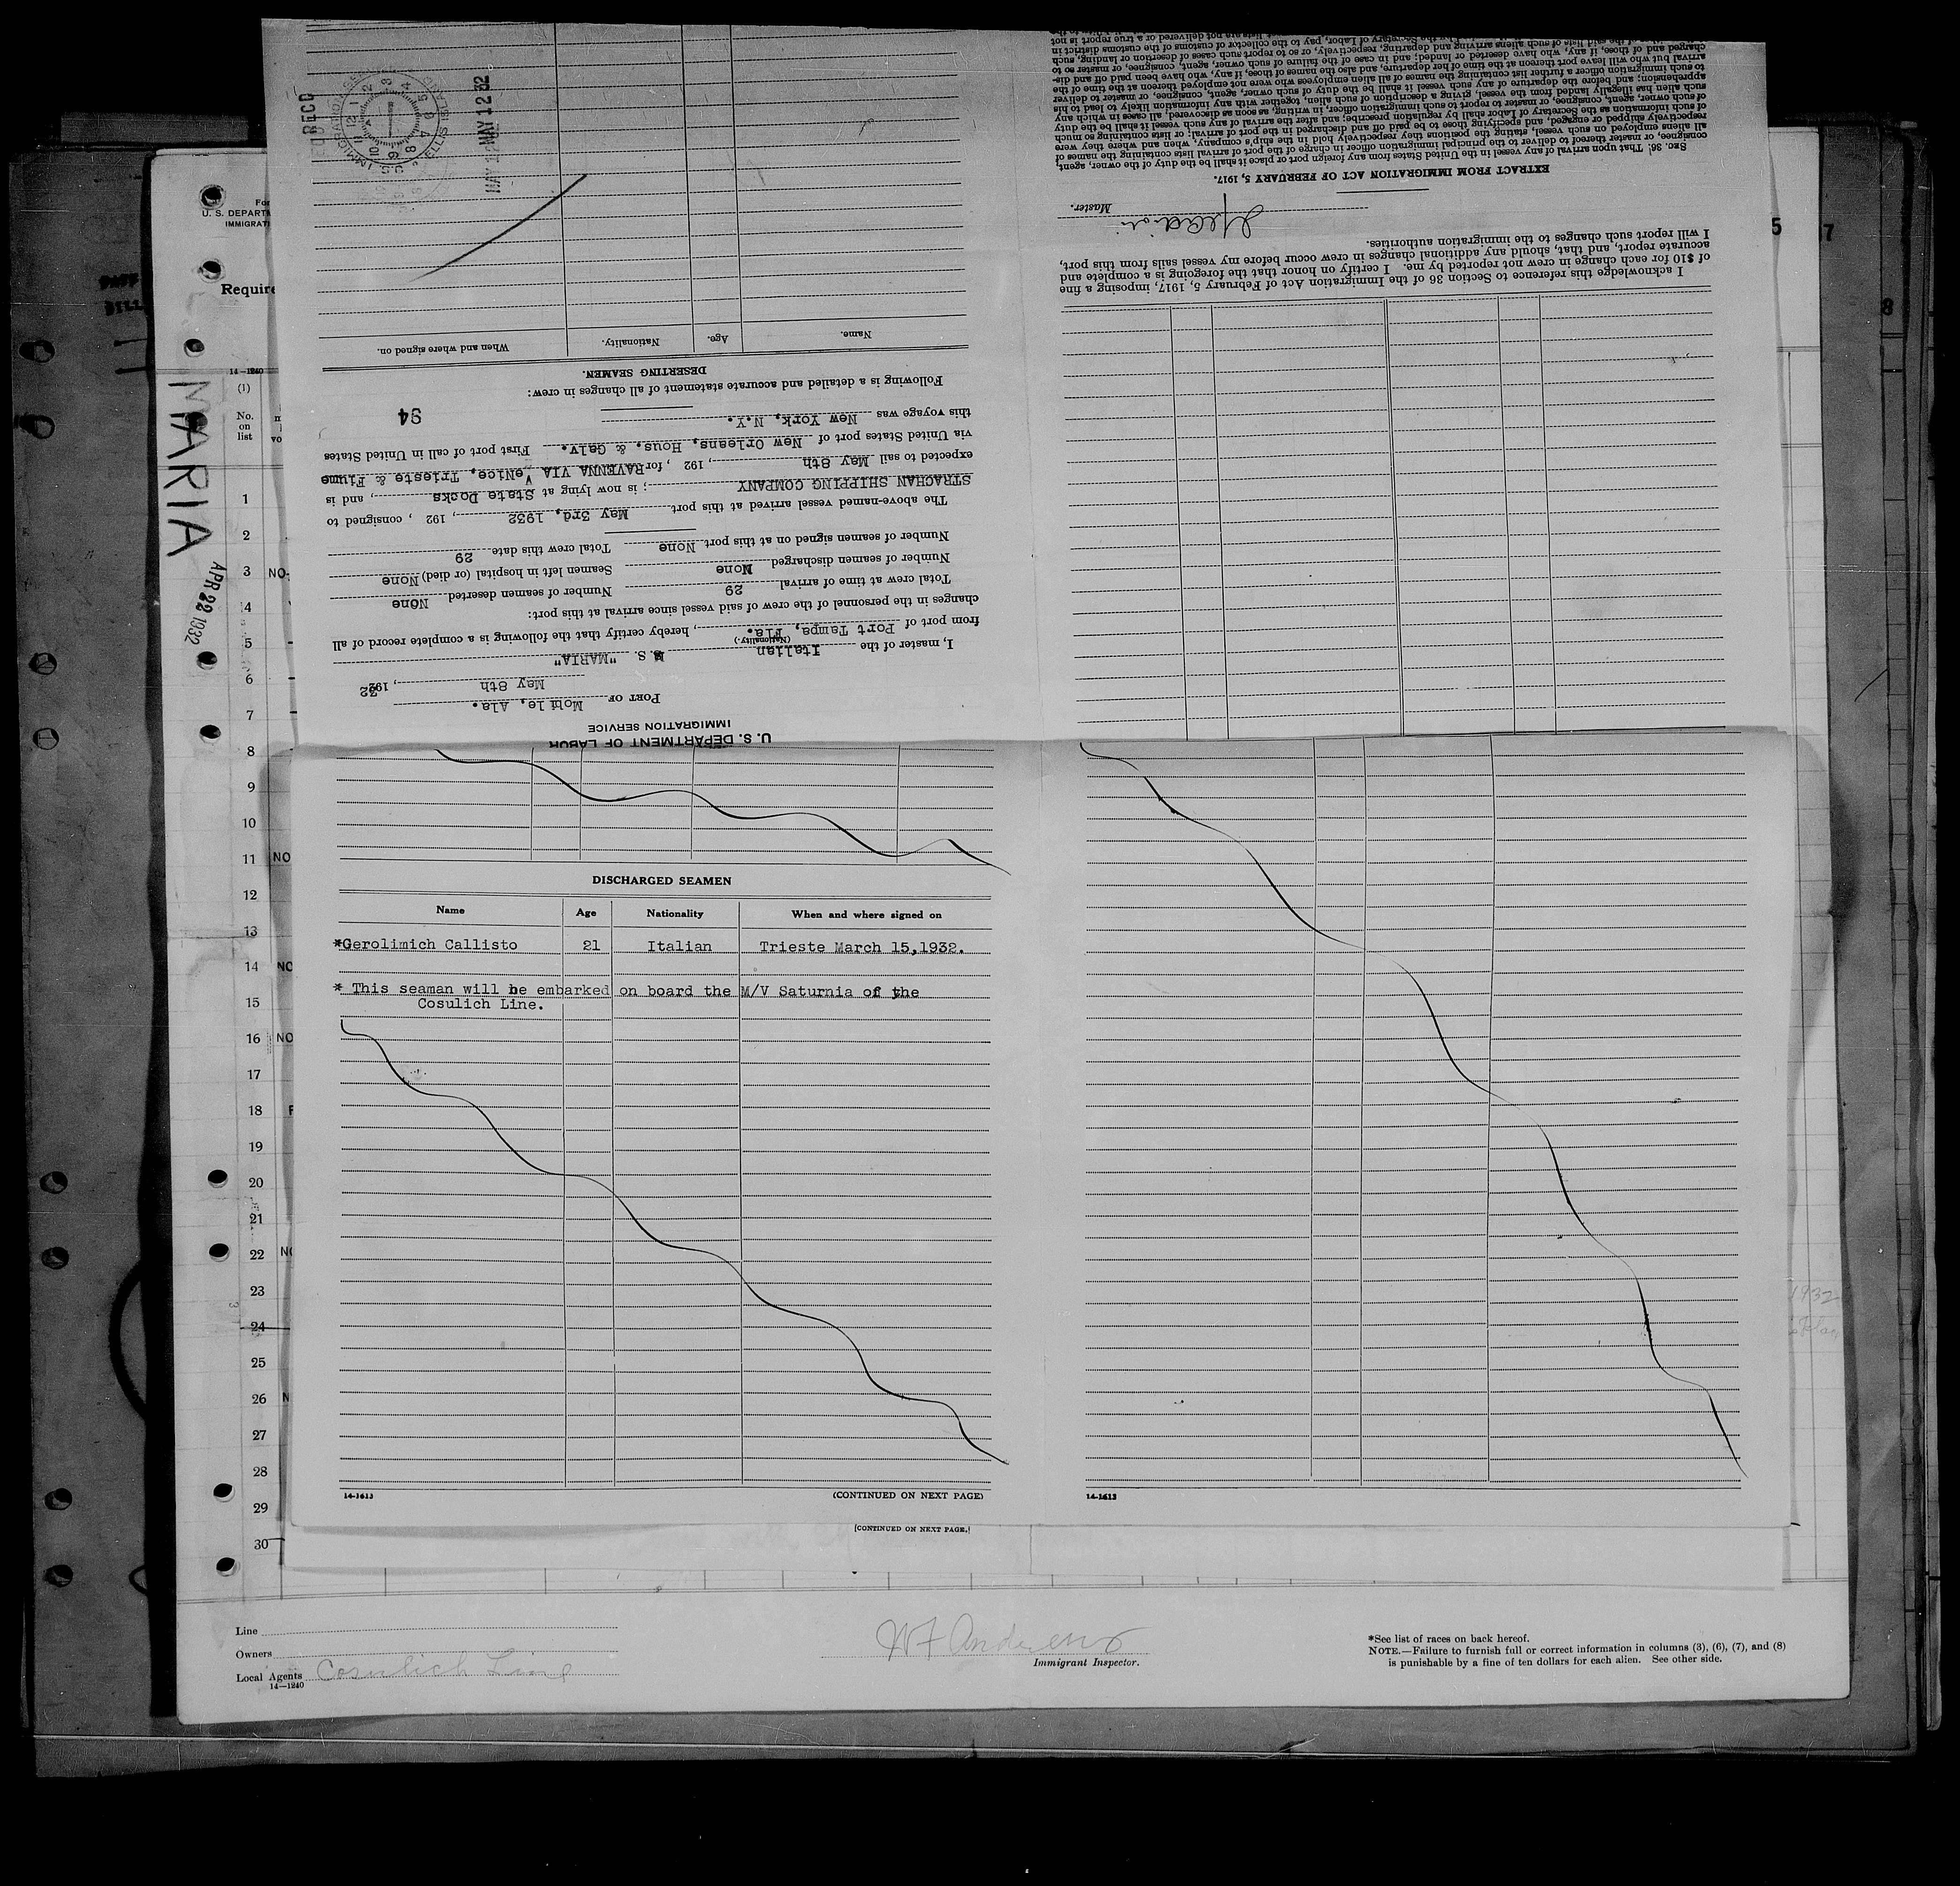 U. S. DEPARTMENT OF LABOR
IMMIGRATION SERVICE
PORT OF Mobile, Ala.
May 8th, 192 32
I, master of the Italian M.S. "MARIA"
(Nationality.)
from port of Port Tampa, Fla., hereby certify that the following is a complete record of all
changes in the personnel of the crew of said vessel since arrival at this port:
Total crew at time of arrival 29 Number of seamen deserted None
Number of seamen discharged None Seamen left in hospital (or died) None
Number of seamen signed on at this port None Total crew this date 29
The above-named vessel arrived at this port May 3rd, 1932, 192 , consigned to
STRACHAN SHIPPING COMPANY; is now lying at State Docks, and is
expected to sail May 8th, 192 , for RAVENNA VIA VeNice, Trieste & Fiume
via United States port of New Orleans, Hous. & Galv. First port of call in United States
this voyage was New York, N.Y.
94
Following is a detailed and accurate statement of all changes in crew:
DESERTING SEAMEN.
Name. Age. Nationality. When and where signed on.
MAY 12 32
REC'D
I acknowledge this reference to Section 36 of the Immigration Act of February 5, 1917, imposing a fine
of $10 for each change in crew not reported by me. I certify on honor that the foregoing is a complete and
accurate report, and that, should any additional changes in crew occur before my vessel sails from this port,
I will report such changes to the immigration authorities.
Master.
EXTRACT FROM IMMIGRATION ACT OF FEBRUARY 5, 1917.
SEC. 36. That upon arrival of any vessel in the United States from any foreign port or place it shall be the duty of the owner, agent,
consignee, or master thereof to deliver to the principal immigration officer in charge of the port of arrival lists containing the names of
all aliens employed on such vessel, stating the positions they respectively hold in the ship's company, when and where they were
respectively shipped or engaged, and specifying those to be paid off and discharged in the port of arrival; or lists containing so much
of such information as the Secretary of Labor shall by regulation prescribe; and after the arrival of any such vessel it shall be the duty
of such owner, agent, consignee, or master to report to such immigration officer, in writing, as soon as discovered, all cases in which any
such alien has illegally landed from the vessel, giving a description of such alien, together with any information likely to lead to his
apprehension; and before the departure of any such vessel it shall be the duty of such owner, agent, consignee, or master to deliver
to such immigration officer a further list containing the names of all alien employees who were not employed thereon at the time of the
arrival but who will leave port thereon at the time of her departure, and also the names of those, if any, who have been paid off and dis-
charged, and of those, if any, who have deserted or landed; and in case of the failure of such owner, agent, consignee, or master so to
DISCHARGED SEAMEN
Name Age Nationality When and where signed on
*Gerolimich Callisto 21 Italian Trieste March 15,1932.
* This seaman will be embarked on board the M/V Saturnia of the
Cosulich Line.
14-1613 (CONTINUED ON NEXT PAGE)
14-1613
[CONTINUED ON NEXT PAGE.]
For
U. S. DEPARTM
IMMIGRATI
Require
14-1240
(1)
No.
on
list
MARIA
APR 22 1932
1
2
3 NO
4
5
6
7
8
9
10
11 NO
12
13
14 NO
15
16 NO
17
18
19
20
21
22 NO
23
24
25
26 N
27
28
29
30
5
7
8
1932
Line
Owners
Local Agents Cosulich Line
14-1240
Immigrant Inspector.
*See list of races on back hereof.
NOTE.—Failure to furnish full or correct information in columns (3), (6), (7), and (8)
is punishable by a fine of ten dollars for each alien. See other side.